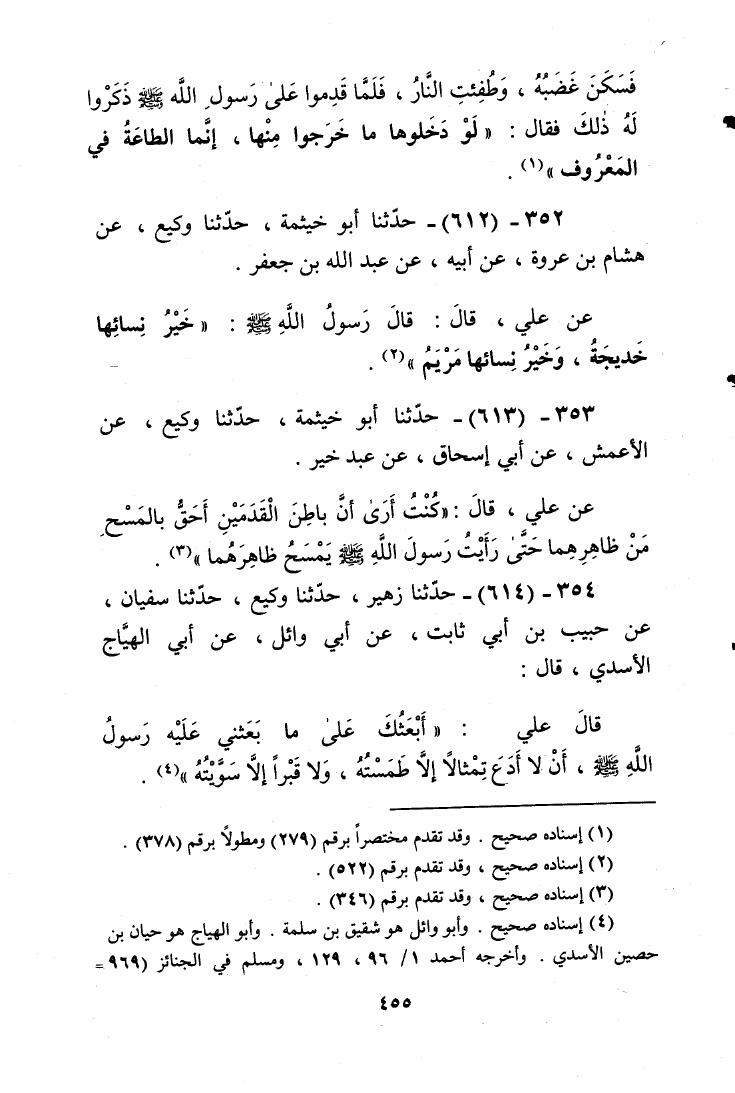 فَسَكَنَ غَضَبُهُ ، وَطُفِئتِ النَّارُ ، فَلَمَّا قَدِموا عَلىٰ رَسولِ اللَّه ﷺ ذَكَرْوا
لَهُ ذٰلكَ فقال : « لَوْ دَخَلوها ما خَرَجوا مِنْها ، إنَّما الطاعَةُ في
المَعْرُوف »(١) .
٣٥٢ - (٦١٢) - حدّثنا أبو خيثمة ، حدّثنا وكيع ، عن
هشام بن عروة ، عن أبيه ، عن عبد الله بن جعفر .
عن علي ، قالَ : قالَ رَسولُ اللَّهِ ﷺ : « خَيْرُ نِسائِها
خَديجَةُ ، وَخَيْرُ نِسائها مَرْيَمُ »(٢) .
٣٥٣ - (٦١٣) - حدّثنا أبو خيثمة ، حدّثنا وكيع ، عن
الأعمش ، عن أبي إسحاق ، عن عبد خير .
عن علي ، قالَ : «كُنْتُ أَرَىٰ أنَّ باطِنَ الْقَدَمَيْنِ أَحَقُّ بالمَسْحِ
مَنْ ظاهِرِهِما حَتَّىٰ رَأَيْتُ رَسولَ اللَّهِ ﷺ يَمْسَحُ ظاهِرَهُما »(٣) .
٣٥٤ - (٦١٤) - حدّثنا زهير ، حدّثنا وكيع ، حدّثنا سفيان ،
عن حبيب بن أبي ثابت ، عن أبي وائل ، عن أبي الهيَّاج
الأسدي ، قال :
قالَ علي : « أَبْعَثُكَ عَلىٰ ما بَعَثني عَلَيْه رَسولُ
اللَّهِ ﷺ ، أَنْ لا أَدَعَ تِمْثالاً إلَّا طَمَسْتُهُ ، وَلا قَبْراً إلَّا سَوَّيْتُهُ »(٤) .
(١) إسناده صحيح . وقد تقدم مختصراً برقم (٢٧٩) ومطولاً برقم (٣٧٨) .
(٢) إسناده صحيح ، وقد تقدم برقم (٥٢٢) .
(٣) إسناده صحيح ، وقد تقدم برقم (٣٤٦) .
(٤) إسناده صحيح . وأبو وائل هو شقيق بن سلمة . وأبو الهياج هو حيان بن
حصين الأسدي . وأخرجه أحمد ١ / ٩٦ ، ١٢٩ ، ومسلم في الجنائز (٩٦٩ =
٤٥٥